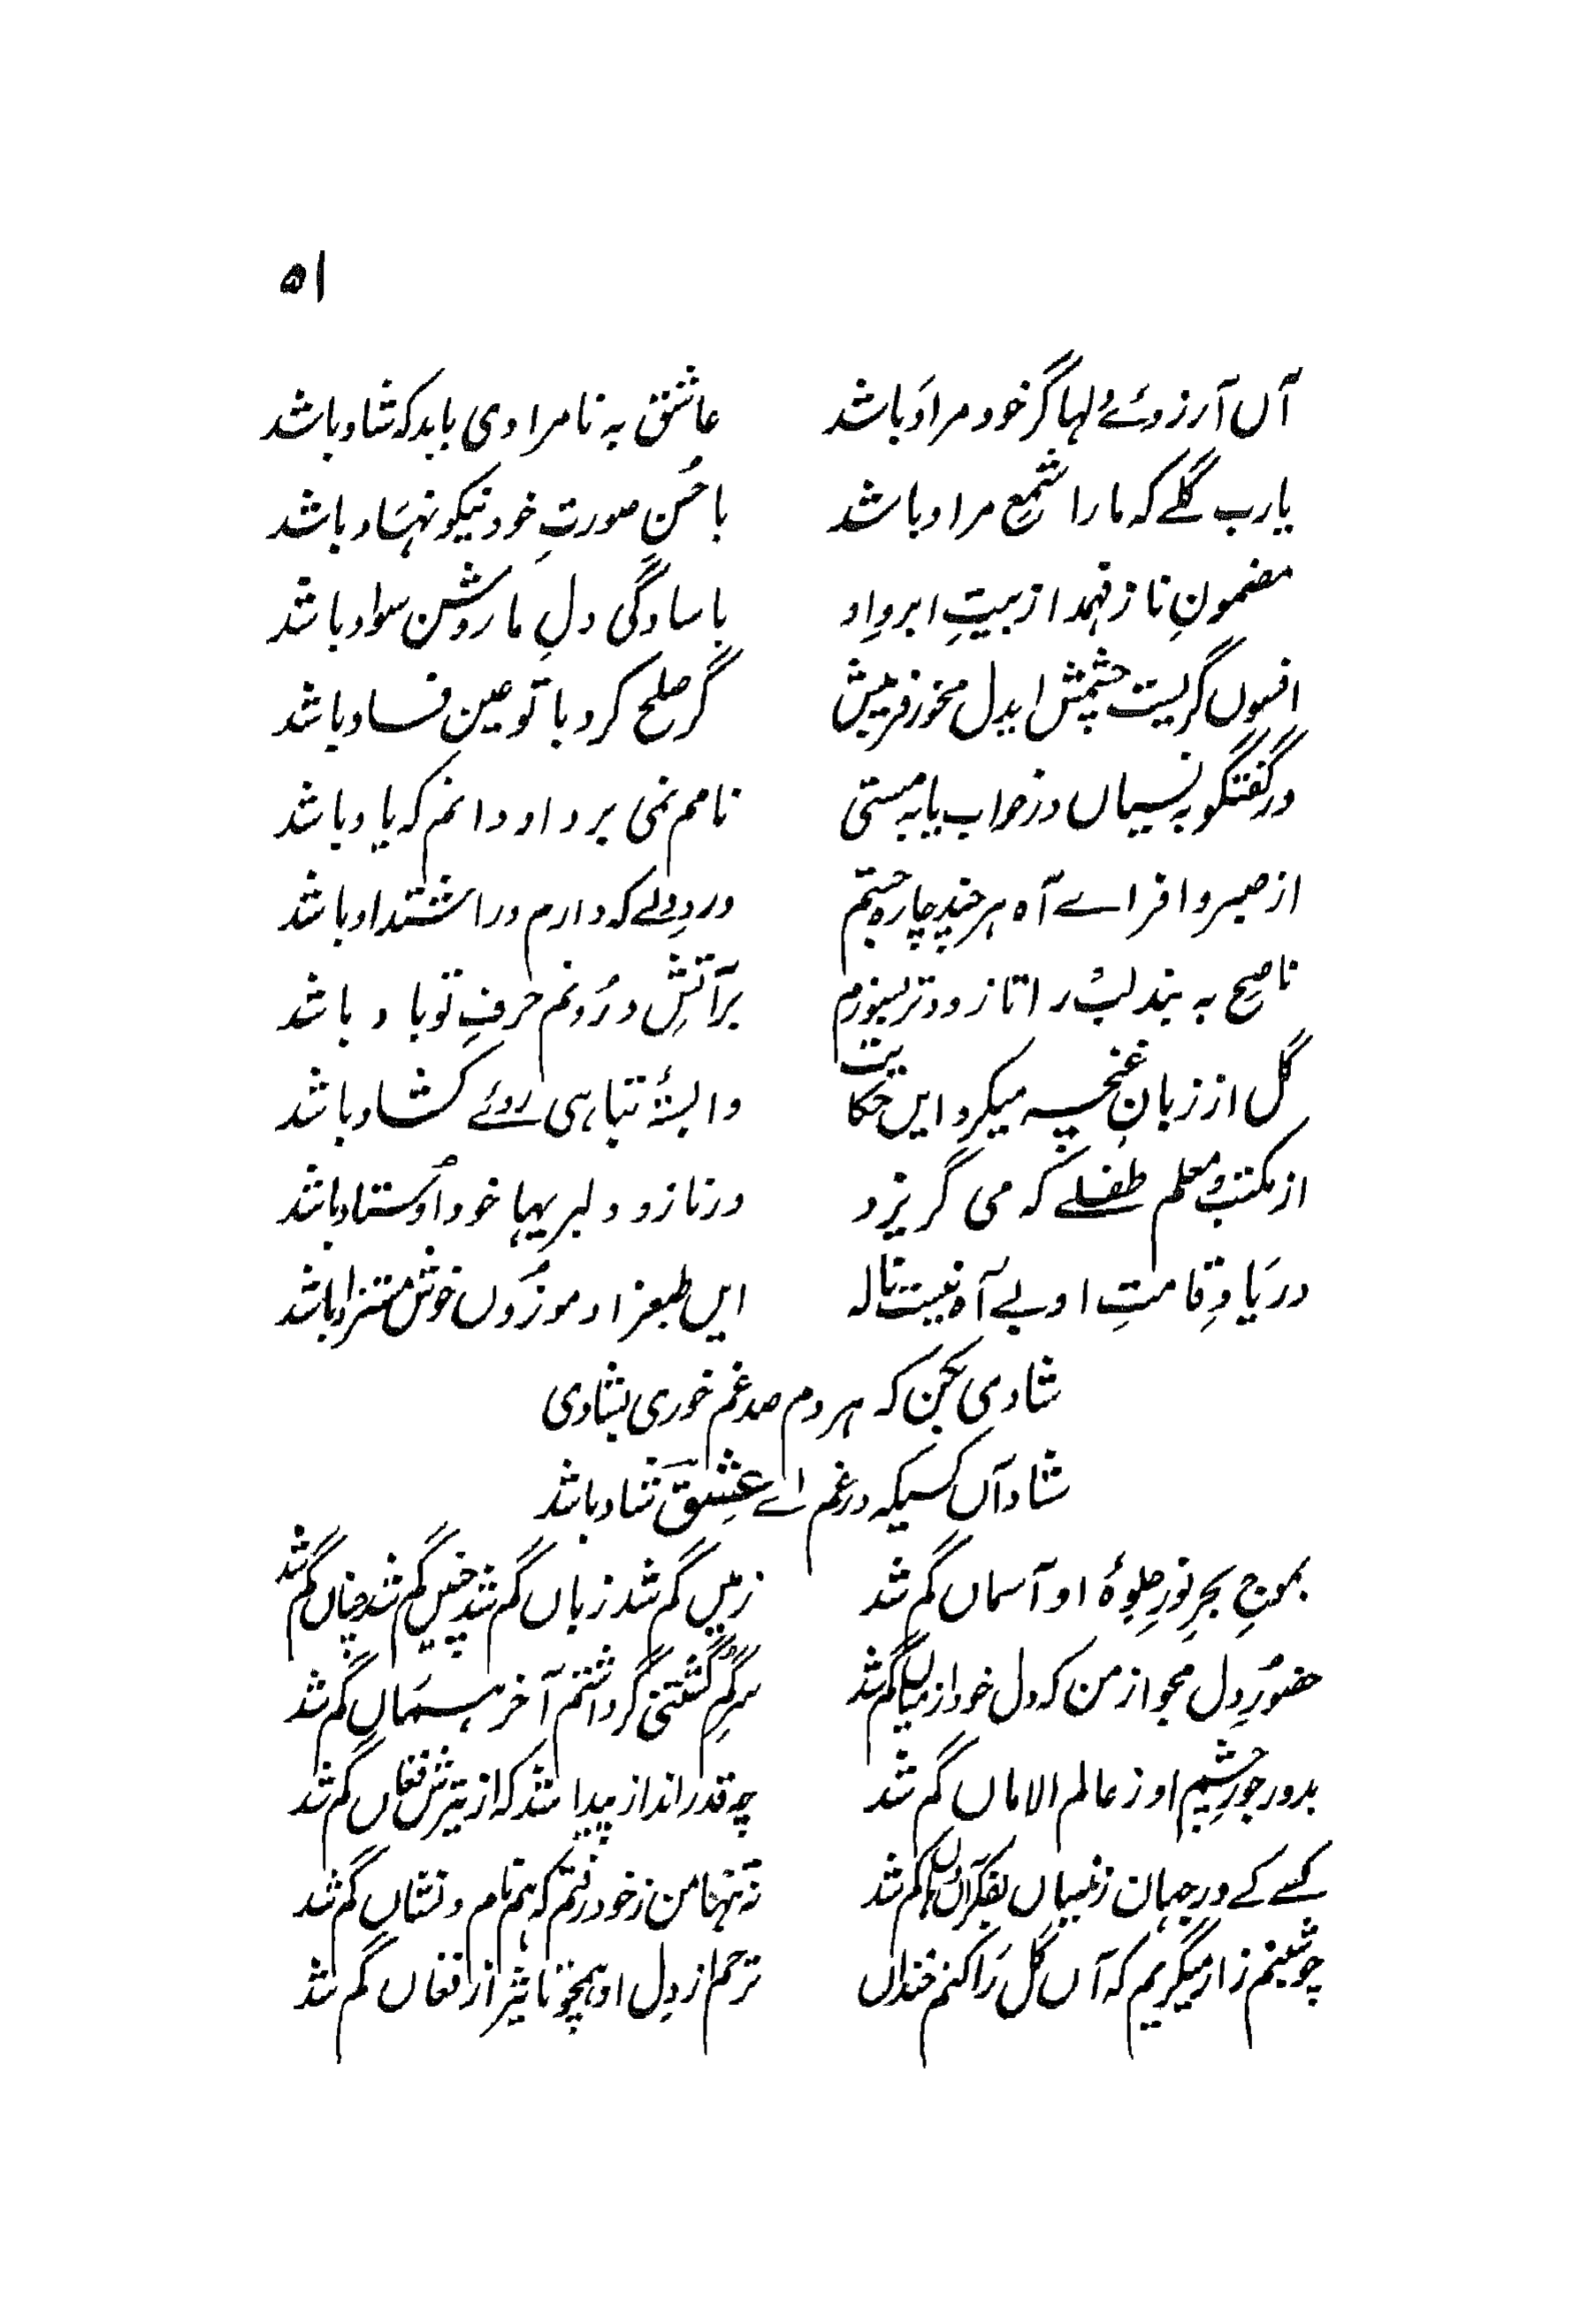 ۵۱
آں آرزوئے دلہا گر خود مراد باشد عاشق بہ نامرادی باید کہ شاد باشد
یارب گلے کہ مارا شمع مراد باشد با حُسنِ صورتِ خود نیکو نہاد باشد
مضمونِ ناز فہمد از بیتِ ابروِ او با سادگی دلِ ما روشن سواد باشد
افسوں گریست چشمش ایدل مخور فریبش گر صلح کرد با تو عینِ فساد باشد
در گفتگو بہ نسیاں در خواب یا بہ مستی نامم نمی برد او دانم کہ یاد باشد
از صبر و اے آہ ہر چند چارہ جستم دردِ دلے کہ دارم در اشتداد باشد
ناصح بہ بند لب را تا زودتر بسوزم بر آتشِ درُونم حرفِ تو باد باشد
گل از زبانِ غنچہ میکرد ایں حکایت وابستۂ تباہی روئے کشاد باشد
از مکتبِ معلم طفلے کہ می گریزد در ناز و دلبریہا خود اُوستاد باشد
در یادِ قامتِ او بے آہ نیست نالہ ایں طبعزاد موزُوں خوش مستزاد باشد
شادمی بکن کہ ہر دم صد غم خوری بشادی
شاد آں کسیکہ در غم اے عِشق شاد باشد
بموجِ بحرِ نورِ جلوۂ او آسماں گم شد زمیں گم شد زباں گم شد چنیں گم شد چناں گم شد
حضورِ دل مجو از من کہ دل خود از میاں گم شد سرِ گم گشتنی گر داشتم آخر ہماں گم شد
بدور جورِ چشمِ او ز عالم الاماں گم شد چہ قدر انداز پیدا شد کہ از تیرش فغاں گم شد
کسے کے در جہان بفکرِ آں دہاں گم شد نہ تنہا من ز خود رفتم کہ ہم نام و نشاں گم شد
چو شبنم زار میگریم کہ آں گل را کنم خنداں ترحم از دلِ او ہمچو تاثیر از فغاں گم شد